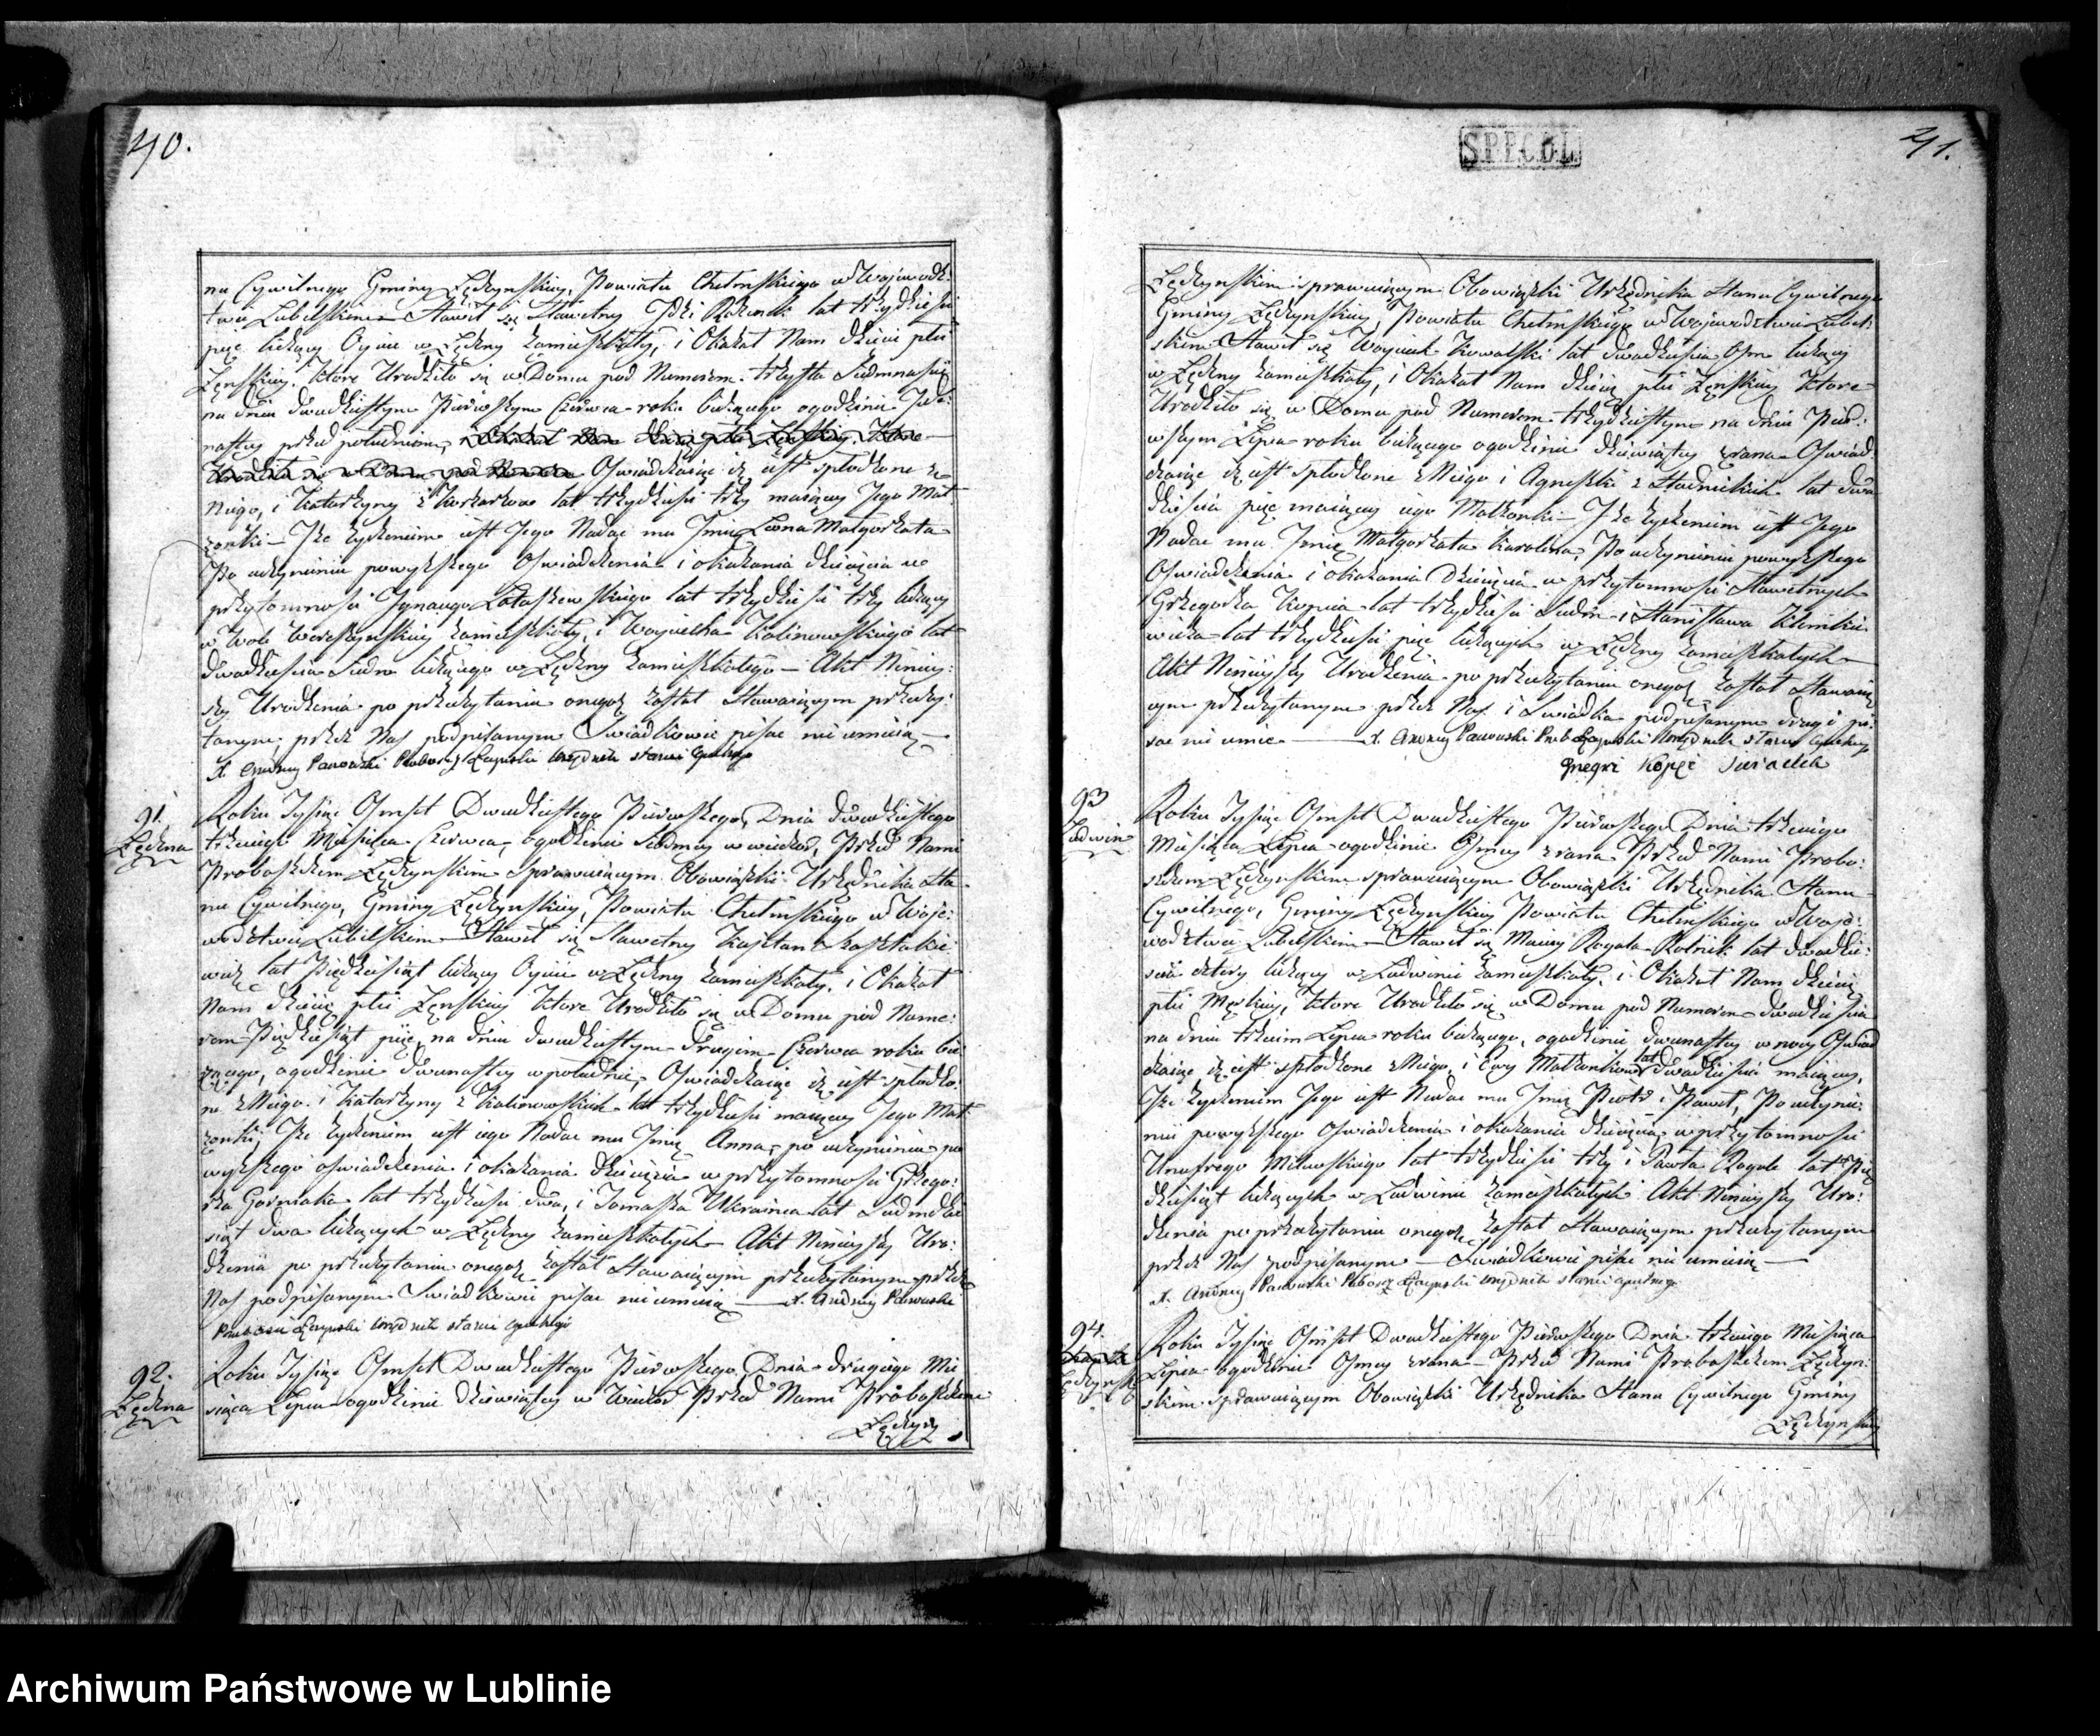 40.
nu Cywilnego Gminy Łęczynskiey, Powiatu Chełmskiego w Wojewodz:
twie Lubelskim Stawił się Sławetny lat trzydzieści
pięć liczący Oyciec w Łęczny zamieszkały, i Okazał Nam dziecię płci
Żęnskiey, ktore Urodziło się w Domu pod Numerem trzysta Siedmnaście
na dniu dwudziestym Pierwszym Czerwca roku bieżącego ogodzinie Jede:
nastey przed południem, i Okazał Nam dziecię płci Żęnskiey ktore
Urodziło się w Domu pod Numerem Oswiadczaiąc iż iest spłodzone z
Niego, i Katarzyny z lat trzydzieści trzy maiącey Jego Mał
żonki — Iże życzeniem iest Jego Nadać mu Jmię Leona Małgorzata
Po uczynieniu powyższego Oswiadczenia i okazania dziecięcia w
przytomnosci Jgnacego lat trzydzieści trzy liczący
w Woli Wereszczynskiey zamieszkały, i Woyciecha Kalinowskiego lat
dwadzieścia Siedm liczącego w Łęczny zamieszkałego — Akt Niniey:
szy Urodzenia po przeczytaniu onegoż został Stawaiącym przeczy:
tanym, przez Nas podpisanym Swiadkowie pisac nieumieią —
X. Andrzey Pawoski Proboszcz Łęczynski Urzędnik stanu Cywilnego
91.
Łęczna
Roku Tysiąc Osmset Dwudziestego Pierwszego, Dnia dwudziestego
trzeciego Miesiąca Czerwca, ogodzinie Siodmey w wieczor, Przed Nami
Proboszczem Łęczynskim Sprawuiącym Obowiązki Urzędnika Sta
nu Cywilnego, Gminy Łęczynskiey, Powiatu Chełmskiego w Woje:
wodztwie Lubelskim — Stawił się Sławetny Kajetan
wicz lat Pięćdziesiąt liczący Oyciec w Łęczny zamieszkały, i Okazał
Nam dziecię płci Żęnskiey ktore Urodziło się w Domu pod Nume:
rem Pięćdziesiąt pięć, na dniu dwudziestym drugim Czerwca roku bie
żącego, ogodzinie dwunastey w południe, Oswiadczaiąc iż iest spłodzo:
ne z Niego i Katarzyny z Kalinowskich lat trzydzieści maiącey Jego Mał
żonki, Iże życzeniem iest iego Nadać mu Jmię Anna, po uczynieniu po
wyższego oswiadczenia i okazania dziecięcia w przytomnosci Grzego:
rza Gorniaka lat trzydzieści dwa, i Tomasza Ukrainca lat Siedmdzie
siąt dwa liczących w Łęczny zamieszkałych Akt Ninieyszy Uro:
dzenia po przeczytaniu onegoż został Stawaiącym przeczytanym przez
Nas podpisanym Swiadkowie pisac nieumieią — X. Andrzey Pawoski
Proboszcz Łęczynski Urzędnik stanu Cywilnego
92.
Łęczna
Roku Tysiąc Osmset Dwudziestego Pierwszego, Dnia drugiego Mie
siąca Lipca ogodzinie dziewiątey w Wieczor Przed Nami Proboszczem
Łęczyn
SPPCDL
41.
Łęczynskim sprawuiącym Obowiązki Urzędnika Stanu Cywilnego
Gminy Łęczynskiey, Powiatu Chełmskiego w Wojewodztwie Lubel:
skim Stawił się Woyciech Kowalski lat dwadzieścia Osm liczący
w Łęczny zamieszkały, i Okazał Nam dziecię płci Żęnskiey ktore
Urodziło się w Domu pod Numerem trzydziestym na dniu Pier:
wszym Lipca roku bieżącego ogodzinie dziewiątey zrana Oswiad
czaiąc iż iest spłodzone z Niego i Agneszki z Stadnickich lat dwa
dzieścia pięć maiącey iego Małżonki — Iże życzeniem iest Jego
Nadać mu Jmię Małgorzata Karolina, Po uczynieniu powyższego
Oswiadczenia i okazania Dziecięcia w przytomnosci Sławetnych
Grzegorza Kopcia lat trzydzieści Siedm i Stanisława Klimkie
wicza lat trzydzieści pięć liczących w Łęczny zamieszkałych —
Akt Ninieyszy Urodzenia po przeczytaniu onegoż został Stawaią
cym przeczytanym przez Nas i Swiadka podpisanym drugi pi:
sac nie umie — X. Andrzey Pawoski Prob Łęczynski Urzędnik stanu Cywilnego
Gregri Kopeć Swiadek
93
Ludwin
Roku Tysiąc Osmset Dwudziestego Pierwszego Dnia trzeciego
Miesiąca Lipca ogodzinie Osmey zrana Przed Nami Probo:
szczem Łęczynskim sprawuiącym Obowiązki Urzędnika Stanu
Cywilnego, Gminy Łęczynskiey Powiatu Chełmskiego w Woje:
wodztwie Lubelskim — Stawił się Maciey Rogala Rolnik lat dwadzie:
ścia cztery liczący w Ludwinie zamieszkały, i Okazał Nam dziecię
płci Męskiey, ktore Urodziło się w Domu pod Numerem dwadzieścia
na dniu trzecim Lipca roku bieżącego, ogodzinie dwunastey w nocy Oswiad
czaiąc iż iest spłodzone z Niego, i Ewy Małżonkow lat dwadzieści maiącey,
Iże życzeniem Jego iest Nadać mu Jmię Piotr i Paweł, Po uczynie:
niu powyższego oswiadczenia i okazaniu dziecięcia w przytomnosci
Onufrego Milewskiego lat trzydzieści trzy i Pawła Rogale lat Pię
dziesiąt liczących w Ludwinie zamieszkałych Akt Ninieyszy Uro:
dzenia po przeczytaniu onegoż został Stawaiącym przeczytanym
przez Nas podpisanym — Swiadkowie pisac nie umieią —
X. Andrzey Pawoski Proboszcz Łęczynski Urzędnik stanu Cywilnego
94.
Roku Tysiąc Osmset Dwudziestego Pierwszego Dnia trzeciego Miesiąca
Lipca ogodzinie Osmey zrana — Przed Nami Proboszczem Łęczyn:
skim sprawuiącym Obowiązki Urzędnika Stanu Cywilnego Gminy
Łęczynskiey
Archiwum Państwowe w Lublinie